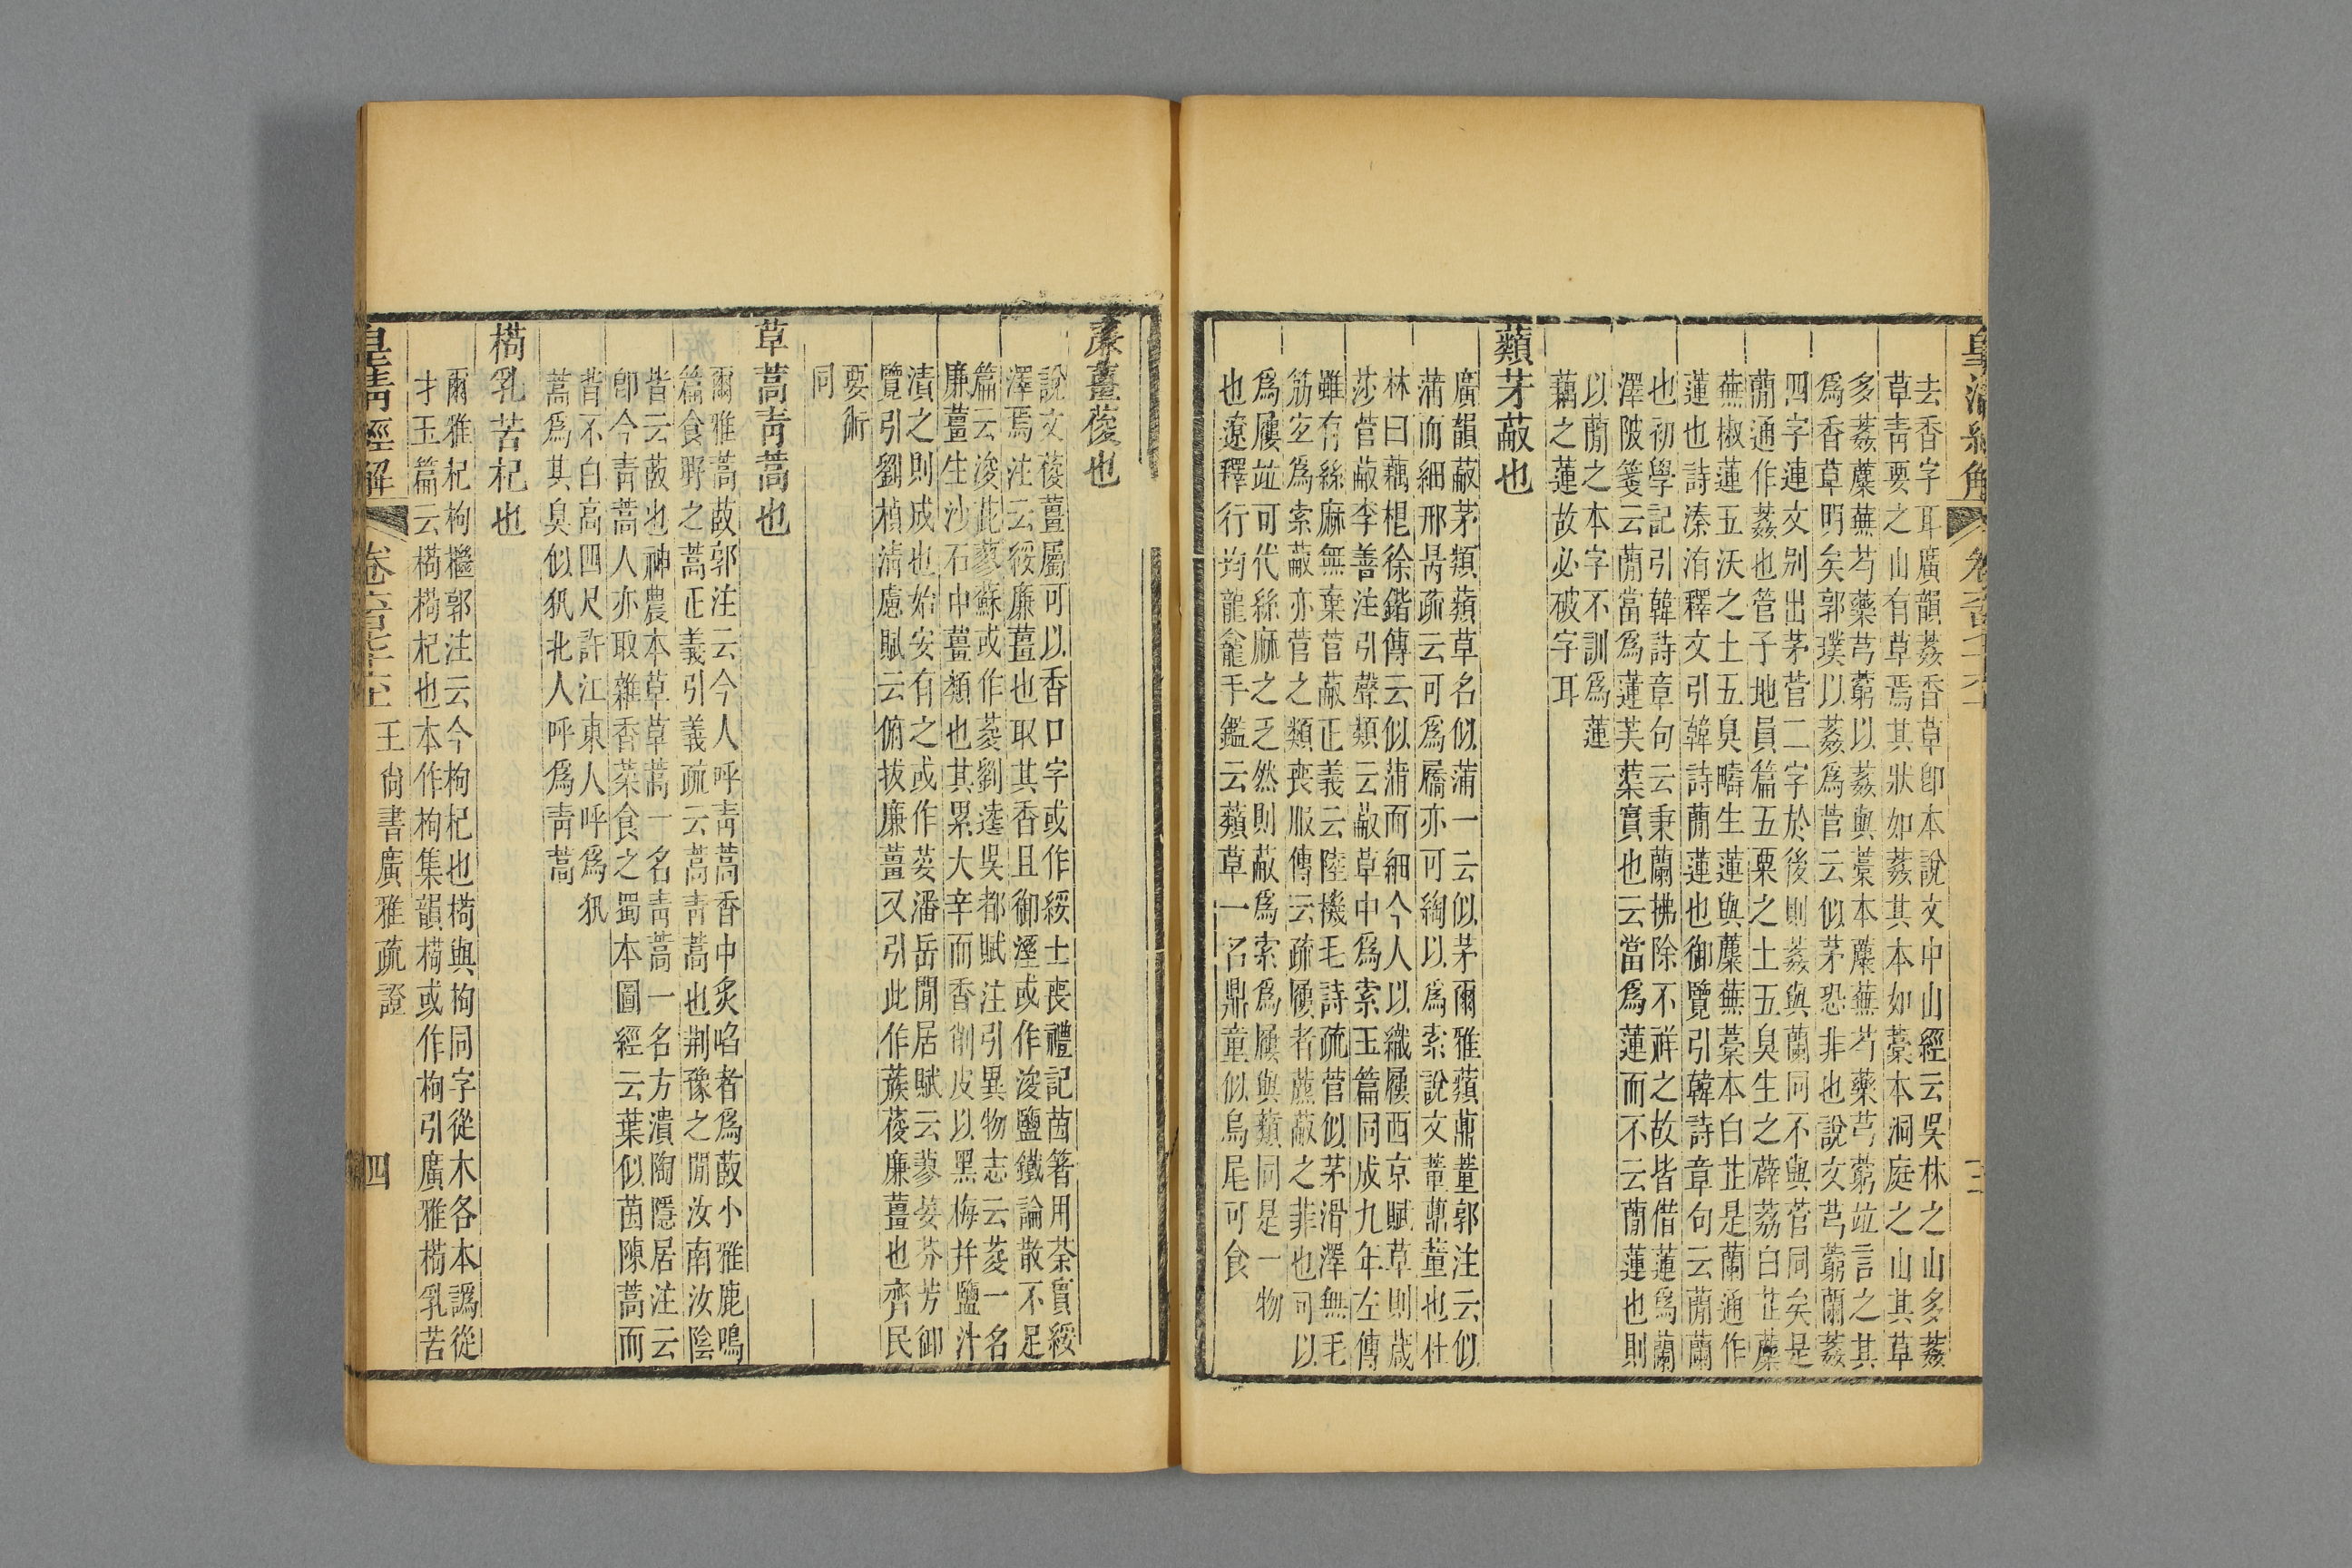 去香字耳廣韻葌香草卽本說文中山經云吳林之山多葌
草靑要之山有草焉其狀如葌其本如藁本洞庭之山其草
多葌蘪蕪芍藥芎藭以葌與藁本蘪蕪芍藥芎藭竝言之其
爲香草明矣郭璞以葌爲菅云似茅恐非也說文芎藭蘭葌
四字連文别出茅菅二字於後則葌與蘭同不與菅同矣是
蕑通作葌也管子地員篇五粟之土五臭生之薜荔白芷蘪
蕪椒蓮五沃之土五臭疇生蓮與蘪蕪藁本白芷是蘭通作
蓮也詩溱洧釋文引韓詩蕑蓮也御覽引韓詩章句云蕑蘭
也初學記引韓詩章句云秉蘭拂除不祥之故皆借蓮爲蘭
澤陂箋云蕑當爲蓮芙蕖實也云當爲蓮而不云蕑蓮也則
以蕑之本字不訓爲蓮
藕之蓮故必破字耳
蘱茅蔽也
廣韻蔽茅類蘱草名似蒲一云似茅爾雅蘱薡蕫郭注云似
蒲而細邢昺疏云可爲屩亦可綯以爲索說文蕫薡蕫也杜
林曰藕根徐鍇傳云似蒲而細今人以織屨西京賦草則葴
莎菅蔽李善注引聲類云蔽草中爲索玉篇同成九年左傳
雖有絲麻無棄菅蔽正義云陸機毛詩疏菅似茅滑澤無毛
筋宐爲索蔽亦菅之類喪服傳云疏屨者藨蔽之菲也可以
爲屨竝可代絲麻之乏然則蔽爲索爲屨與蘱同是一物
也遼釋行均龍龕手鑑云蘱草一名鼎童似烏尾可食
廉薑葰也
說文葰薑屬可以香口字或作綏士喪禮記茵箸用荼實綏
澤焉注云綏廉薑也取其香且御溼或作浚鹽鐵論散不足
篇云浚茈蓼蘇或作荾劉逵吳都賦注引異物志云荾一名
廉薑生沙石中薑類也其累大辛而香削皮以黑梅并鹽汁
漬之則成也始安有之或作荽潘岳閒居賦云蓼荽芬芳御
覽引劉楨淸慮賦云俯拔廉薑又引此作蔟葰廉薑也齊民
要術
同
草蒿靑蒿也
爾雅蒿菣郭注云今人呼靑蒿香中炙啗者爲菣小雅鹿鳴
篇食野之蒿正義引義疏云蒿靑蒿也荆豫之閒汝南汝陰
皆云菣也神農本草草蒿一名靑蒿一名方潰陶隱居注云
卽今靑蒿人亦取雜香菜食之蜀本圖經云葉似茵陳蒿而
背不白高四尺許江東人呼爲㹴
蒿爲其臭似㹴北人呼爲靑蒿
檹乳苦杞也
爾雅杞枸檵郭注云今枸杞也檹與枸同字從木各本譌從
才玉篇云檹檹杞也本作枸集韻檹或作枸引廣雅檹乳苦
皇淸經解
王尙書廣雅疏證
四